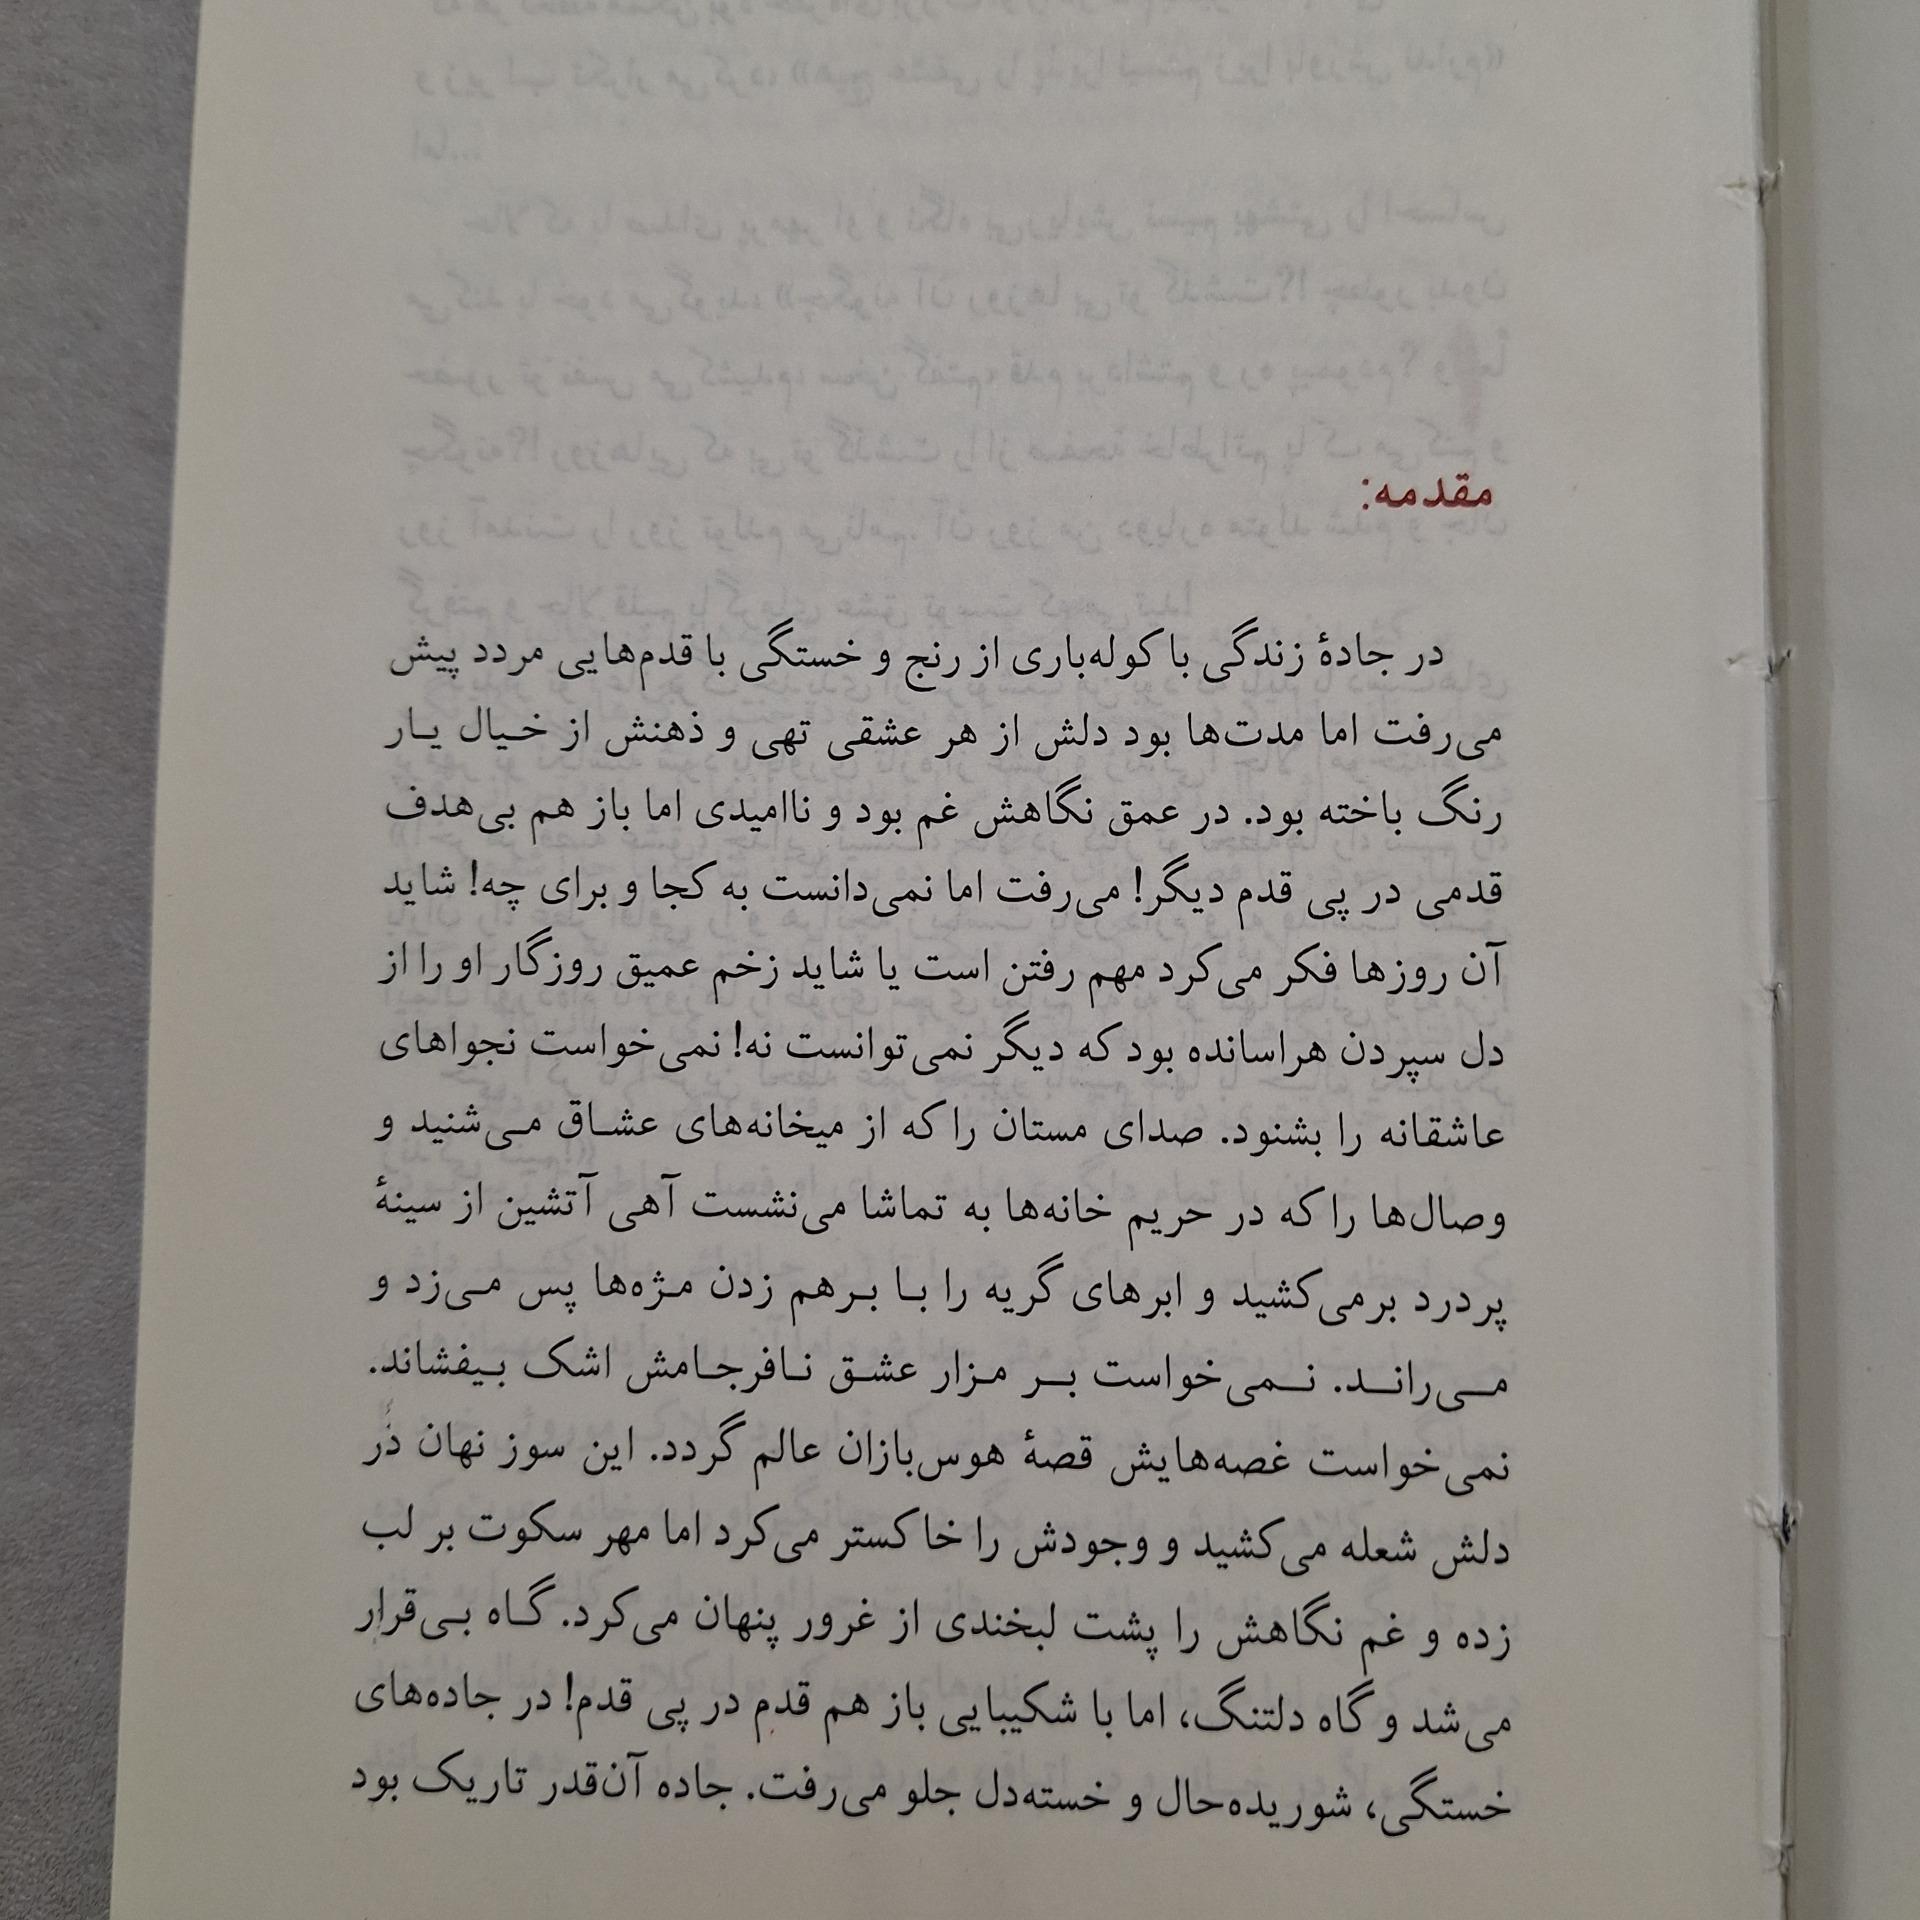 مقدمه:
در جادهٔ زندگی با کوله‌باری از رنج و خستگی با قدم‌هایی مردد پیش
می‌رفت اما مدت‌ها بود دلش از هر عشقی تهی و ذهنش از خیال یار
رنگ باخته بود. در عمق نگاهش غم بود و ناامیدی اما باز هم بی‌هدف
قدمی در پی قدم دیگر! می‌رفت اما نمی‌دانست به کجا و برای چه! شاید
آن روزها فکر می‌کرد مهم رفتن است یا شاید زخم عمیق روزگار او را از
دل سپردن هراسانده بود که دیگر نمی‌توانست نه! نمی‌خواست نجواهای
عاشقانه را بشنود. صدای مستان را که از میخانه‌های عشاق می‌شنید و
وصال‌ها را که در حریم خانه‌ها به تماشا می‌نشست آهی آتشین از سینهٔ
پردرد برمی‌کشید و ابرهای گریه را با برهم زدن مژه‌ها پس می‌زد و
می‌راند. نمی‌خواست بر مزار عشق نافرجامش اشک بیفشاند.
نمی‌خواست غصه‌هایش قصهٔ هوس‌بازان عالم گردد. این سوز نهان در
دلش شعله می‌کشید و وجودش را خاکستر می‌کرد اما مهر سکوت بر لب
زده و غم نگاهش را پشت لبخندی از غرور پنهان می‌کرد. گاه بی‌قرار
می‌شد و گاه دلتنگ، اما با شکیبایی باز هم قدم در پی قدم! در جاده‌های
خستگی، شوریده‌حال و خسته‌دل جلو می‌رفت. جاده آن‌قدر تاریک بود